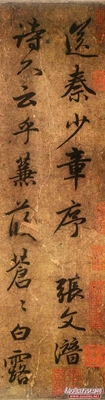 送秦少章序 張文潛
詩不云乎蒹葭蒼〻白露